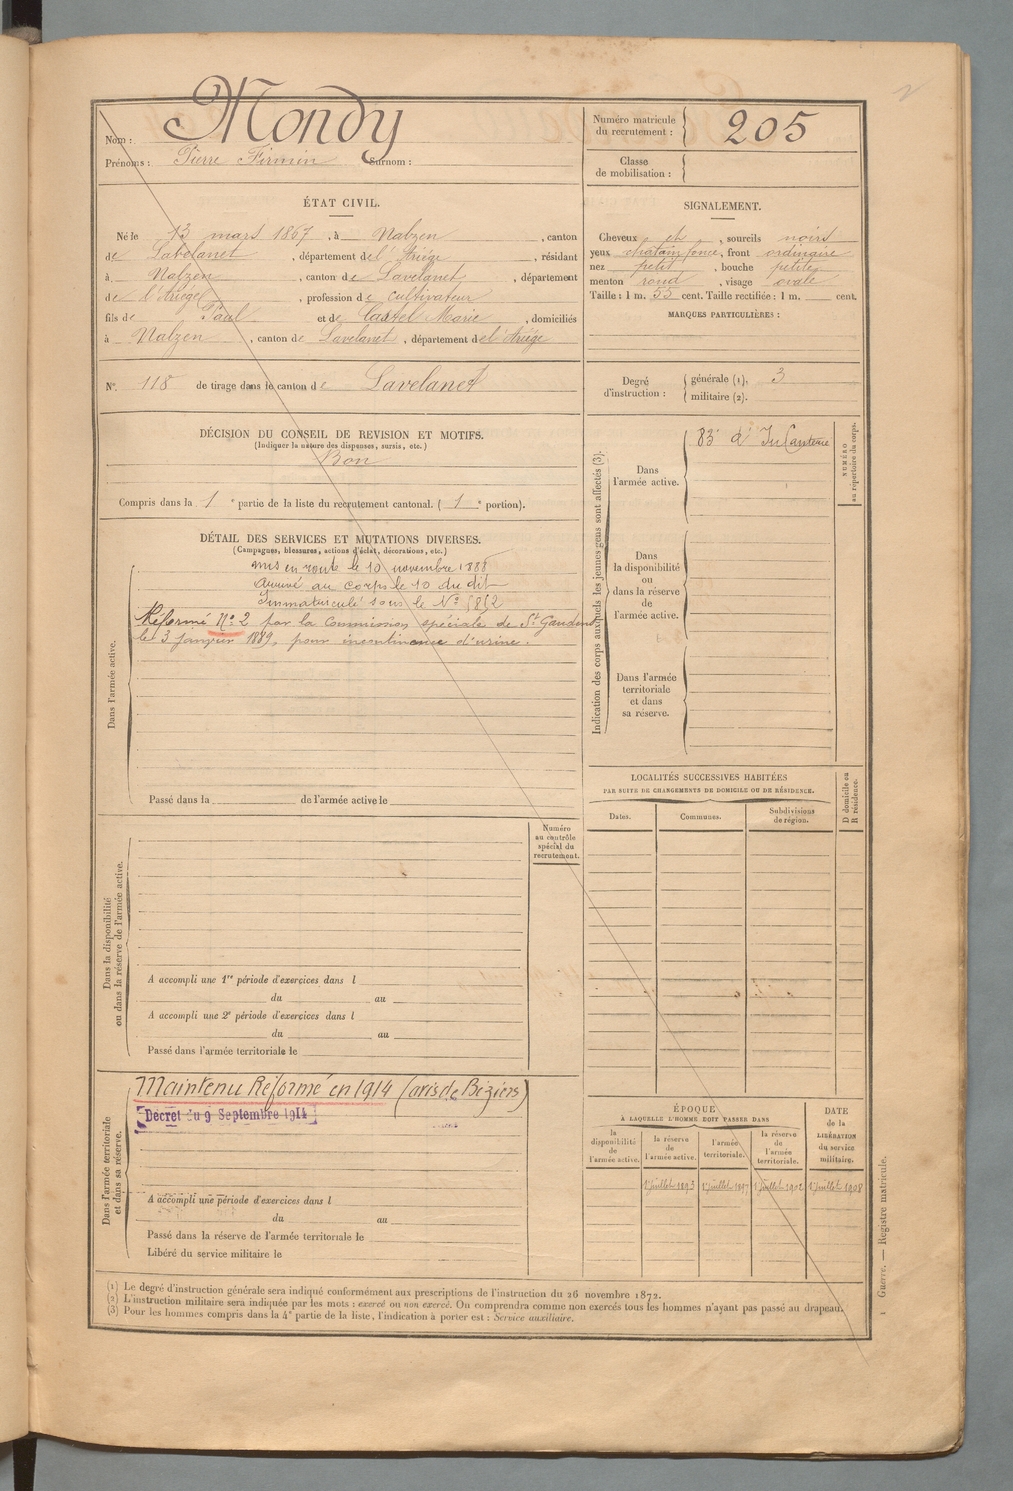 Nom : Mondy
Prénoms : Pierre Firmin Surnom :
Numéro matricule
du recrutement : 205
Classe
de mobilisation :
ÉTAT CIVIL.
Né le 13 mars 1867, à Nalzen, canton
de Lavelanet, département de l'Ariége, résidant
à Nalzen, canton de Lavelanet, département
de l'Ariége, profession de cultivateur
fils de Paul et de Castel Marie, domiciliés
à Nalzen, canton de Lavelanet, département de l'Ariége
SIGNALEMENT.
Cheveux et, sourcils noirs
yeux chatain foncé, front ordinaire
nez petit, bouche petite
menton rond, visage ovale
Taille : 1 m. 55 cent. Taille rectifiée : 1 m. cent.
MARQUES PARTICULIÈRES :
N° 118 de tirage dans le canton de Lavelanet
Degré
d'instruction :
générale (1). 3
militaire (2).
DÉCISION DU CONSEIL DE REVISION ET MOTIFS.
(Indiquer la nature des dispenses, sursis, etc.)
Bon
Compris dans la 1e partie de la liste du recrutement cantonal. (1e portion).
DÉTAIL DES SERVICES ET MUTATIONS DIVERSES.
(Campagnes, blessures, actions d'éclat, décorations, etc.)
Dans l'armée active.
mis en route le 10 novembre 1888
Arrivé au corps le 10 du dit
Immatriculé sous le N°
Réformé N° 2 par la Commission spéciale de St Gaudens
le 3 janvier 1889, pour incontinence d'urine.
Passé dans la de l'armée active le
Indication des corps auxquels les jeunes gens sont affectés (3).
Dans
l'armée active.
83e d'Infanterie
NUMÉRO
au répertoire du corps.
Dans
la disponibilité
ou
dans la réserve
de
l'armée active.
Dans l'armée
territoriale
et dans
sa réserve.
LOCALITÉS SUCCESSIVES HABITÉES
PAR SUITE DE CHANGEMENTS DE DOMICILE OU DE RÉSIDENCE.
Dates.
Communes.
Subdivisions
de région.
D domicile ou
R résidence.
Dans la disponibilité
ou dans la réserve de l'armée active.
Numéro
au contrôle
spécial du
recrutement.
A accompli une 1re période d'exercices dans l
du au
A accompli une 2e période d'exercices dans l
du au
Passé dans l'armée territoriale le
Dans l'armée territoriale
et dans sa réserve.
Maintenu Réformé en 1914 (avis de Béziers)
Décret du 9 Septembre 1914
A accompli une période d'exercices dans l
du au
Passé dans la réserve de l'armée territoriale le
Libéré du service militaire le
ÉPOQUE
À LAQUELLE L'HOMME DOIT PASSER DANS
la
disponibilité
de
l'armée active.
la réserve
de
l'armée active.
l'armée
territoriale.
la réserve
de
l'armée
territoriale.
DATE
de la
LIBÉRATION
du service
militaire.
1er juillet 1893
1er juillet 1897
1er juillet 1902
1er juillet 1908
(1) Le degré d'instruction générale sera indiqué conformément aux prescriptions de l'instruction du 26 novembre 1872.
(2) L'instruction militaire sera indiquée par les mots : exercé ou non exercé. On comprendra comme non exercés tous les hommes n'ayant pas passé au drapeau.
(3) Pour les hommes compris dans la 4e partie de la liste, l'indication à porter est : Service auxiliaire.
1 Guerre. — Registre matricule.